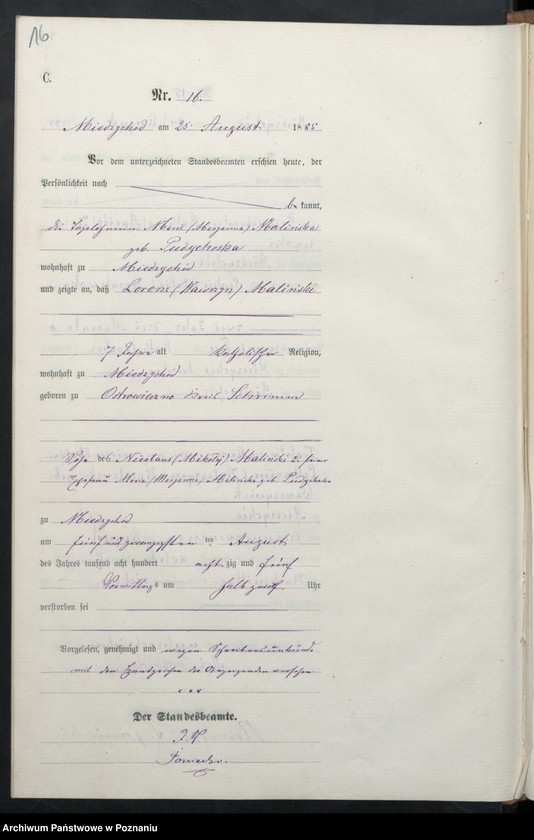 16.
C.
Nr. 16.
Miedzychód am 25. August 1885
Vor dem unterzeichneten Standesbeamten erschien heute, der
Persönlichkeit nach
be kannt,
die Tagelöhnerin Marie (Maryanna) Malińska
geb.
wohnhaft zu Miedzychód
und zeigte an, daß Lorenz (Wawrzyn) Maliński
7 Jahre alt katholischer Religion,
wohnhaft zu Miedzychód
geboren zu Ostrowieczno Kreis Schrimm
Sohn des Nicolaus (Mikołaj) Maliński u. seiner
Ehefrau Marie (Maryanna) Malińska geb.
zu Miedzychód
am fünf und zwanzigsten August
des Jahres tausend acht hundert acht zig und fünf
Vormittags um halb zwölf Uhr
verstorben sei
Vorgelesen, genehmigt und wegen Schreibensunkunde
mit dem Handzeichen der Anzeigenden versehen
xxx
Der Standesbeamte.
Archiwum Państwowe w Poznaniu